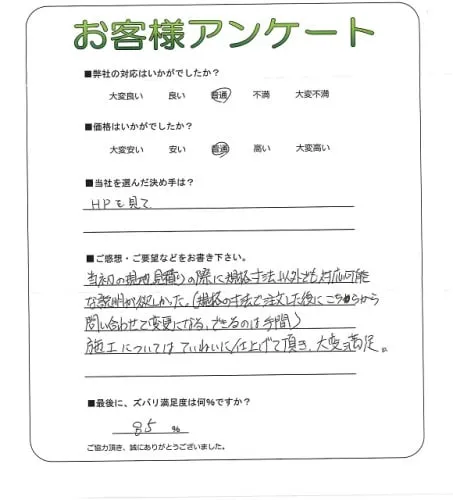 お客様アンケート
■弊社の対応はいかがでしたか？
大変良い 良い 普通 不満 大変不満
■価格はいかがでしたか？
大変安い 安い 普通 高い 大変高い
■当社を選んだ決め手は？
HPを見て
■ご感想・ご要望などをお書き下さい。
当初の現地見積りの際に規格寸法以外も対応可能
な説明が欲しかった。(規格の寸法で注文した後にこちらから
問い合わせて変更になる、できるのは手間)
施工についてはていねいに仕上げて頂き、大変満足。
■最後に、ズバリ満足度は何%ですか？
85 %
ご協力頂き、誠にありがとうございました。